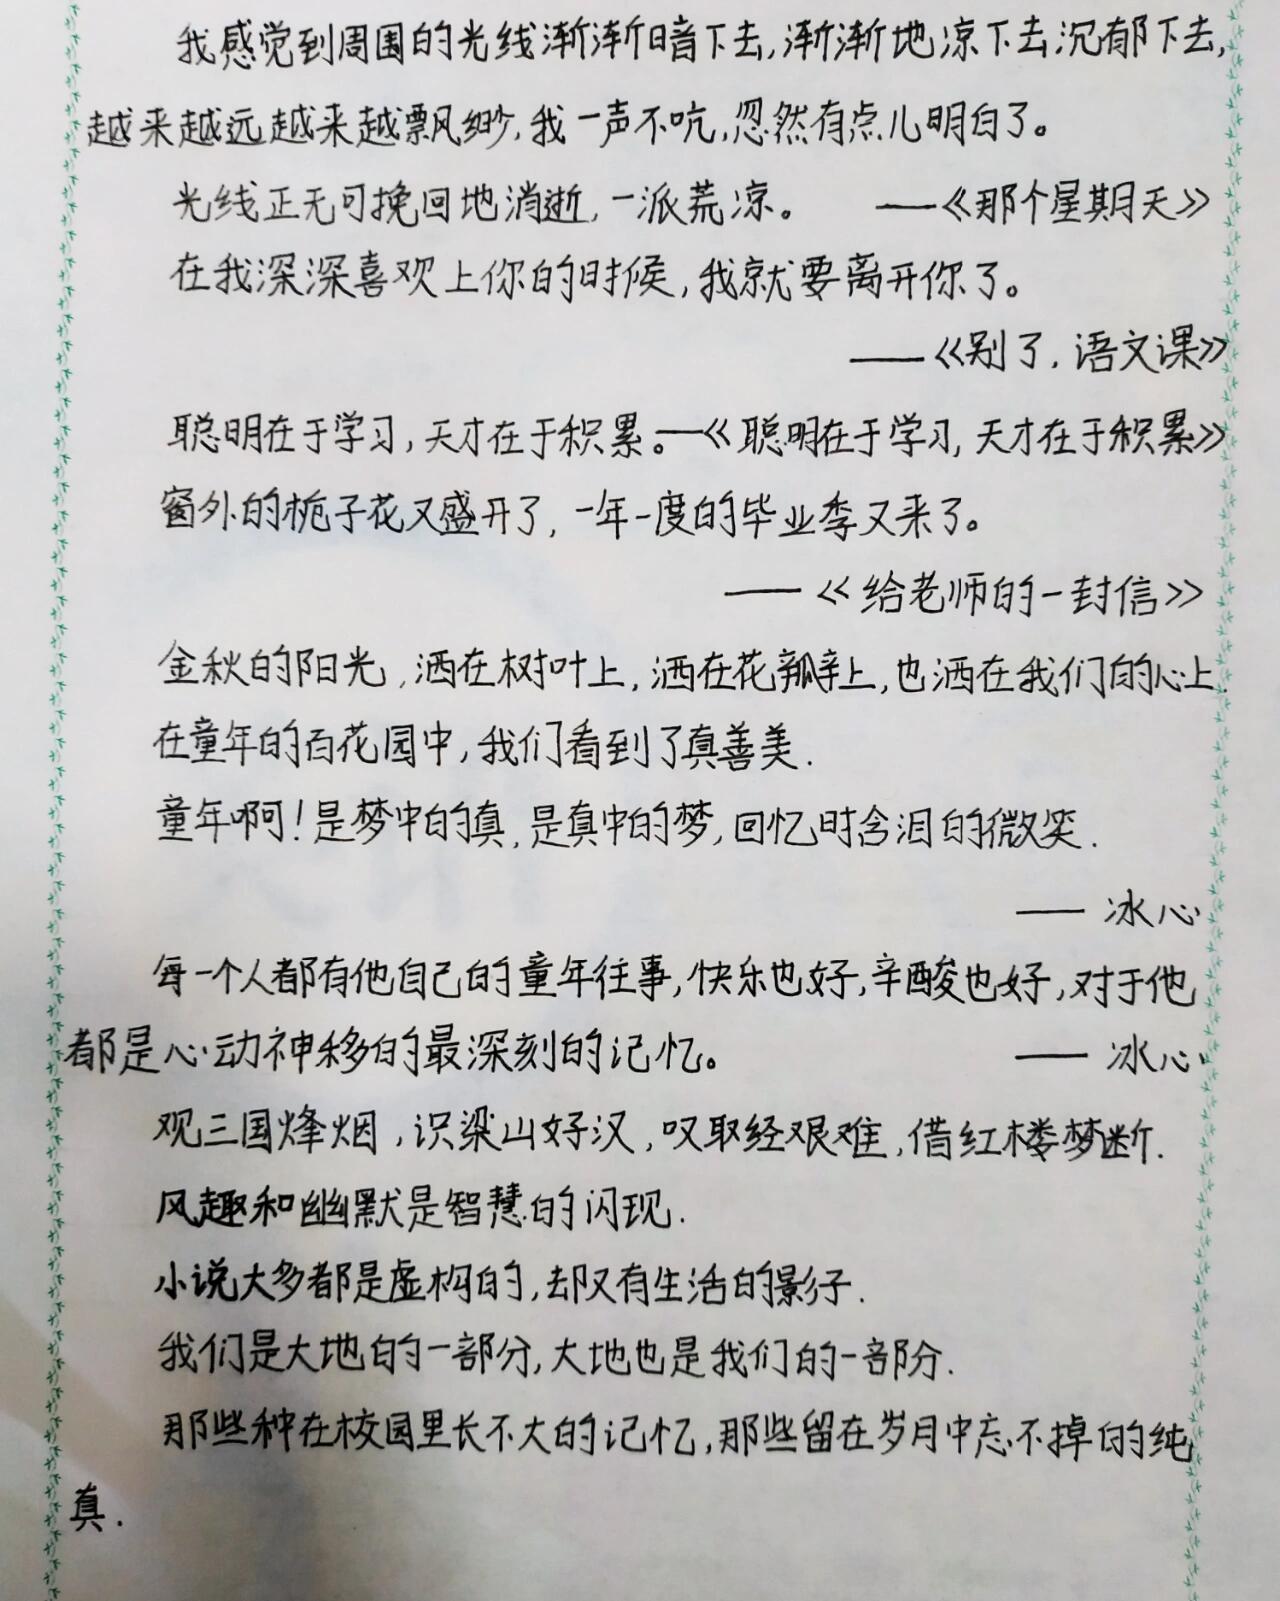 我感觉到周围的光线渐渐暗下去,渐渐地凉下去沉郁下去,
越来越远越来越飘缈,我一声不吭,忽然有点儿明白了。
光线正无可挽回地消逝,一派荒凉。 ——《那个星期天》
在我深深喜欢上你的时候,我就要离开你了。
——《别了,语文课》
聪明在于学习,天才在于积累。—《聪明在于学习,天才在于积累》
窗外的栀子花又盛开了,一年一度的毕业季又来了。
——《给老师的一封信》
金秋的阳光,洒在树叶上,洒在花瓣上,也洒在我们的心上.
在童年的百花园中,我们看到了真善美.
童年啊!是梦中的真,是真中的梦,回忆时含泪的微笑.
——冰心
每一个人都有他自己的童年往事,快乐也好,辛酸也好,对于他
都是心动神移的最深刻的记忆。 ——冰心
观三国烽烟,识梁山好汉,叹取经艰难,借红楼梦断.
风趣和幽默是智慧的闪现.
小说大多都是虚构的,却又有生活的影子.
我们是大地的一部分,大地也是我们的一部分.
那些种在校园里长不大的记忆,那些留在岁月中忘不掉的纯
真.